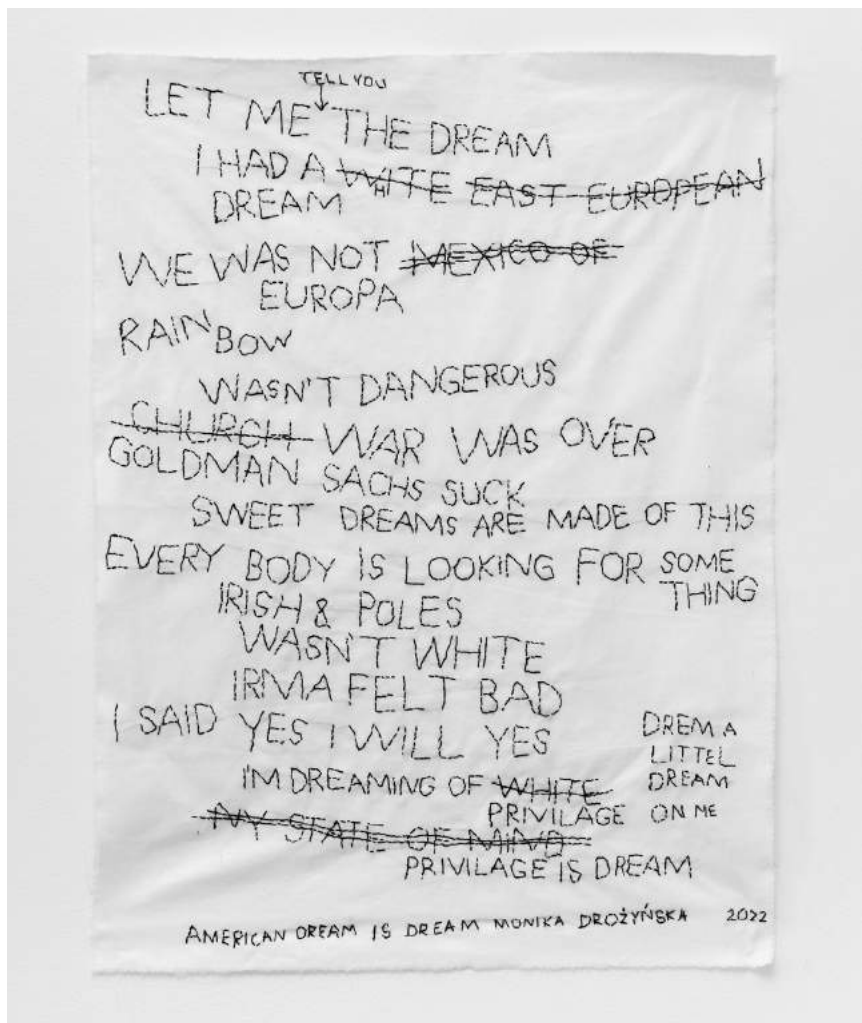 TELL YOU
LET ME THE DREAM
I HAD A WHITE EAST EUROPEAN
DREAM
WE WAS NOT MEXICO OF
EUROPA
RAINBOW
WASN'T DANGEROUS
CHURCH WAR WAS OVER
GOLDMAN SACHS SUCK
SWEET DREAMS ARE MADE OF THIS
EVERY BODY IS LOOKING FOR SOME
THING
IRISH & POLES
WASN'T WHITE
IRMA FELT BAD
I SAID YES I WILL YES
DREM A
LITTEL
I'M DREAMING OF WHITE DREAM
PRIVILAGE ON ME
NY STATE OF MIND
PRIVILAGE IS DREAM
AMERICAN DREAM IS DREAM MONIKA DROŻYŃSKA 2022